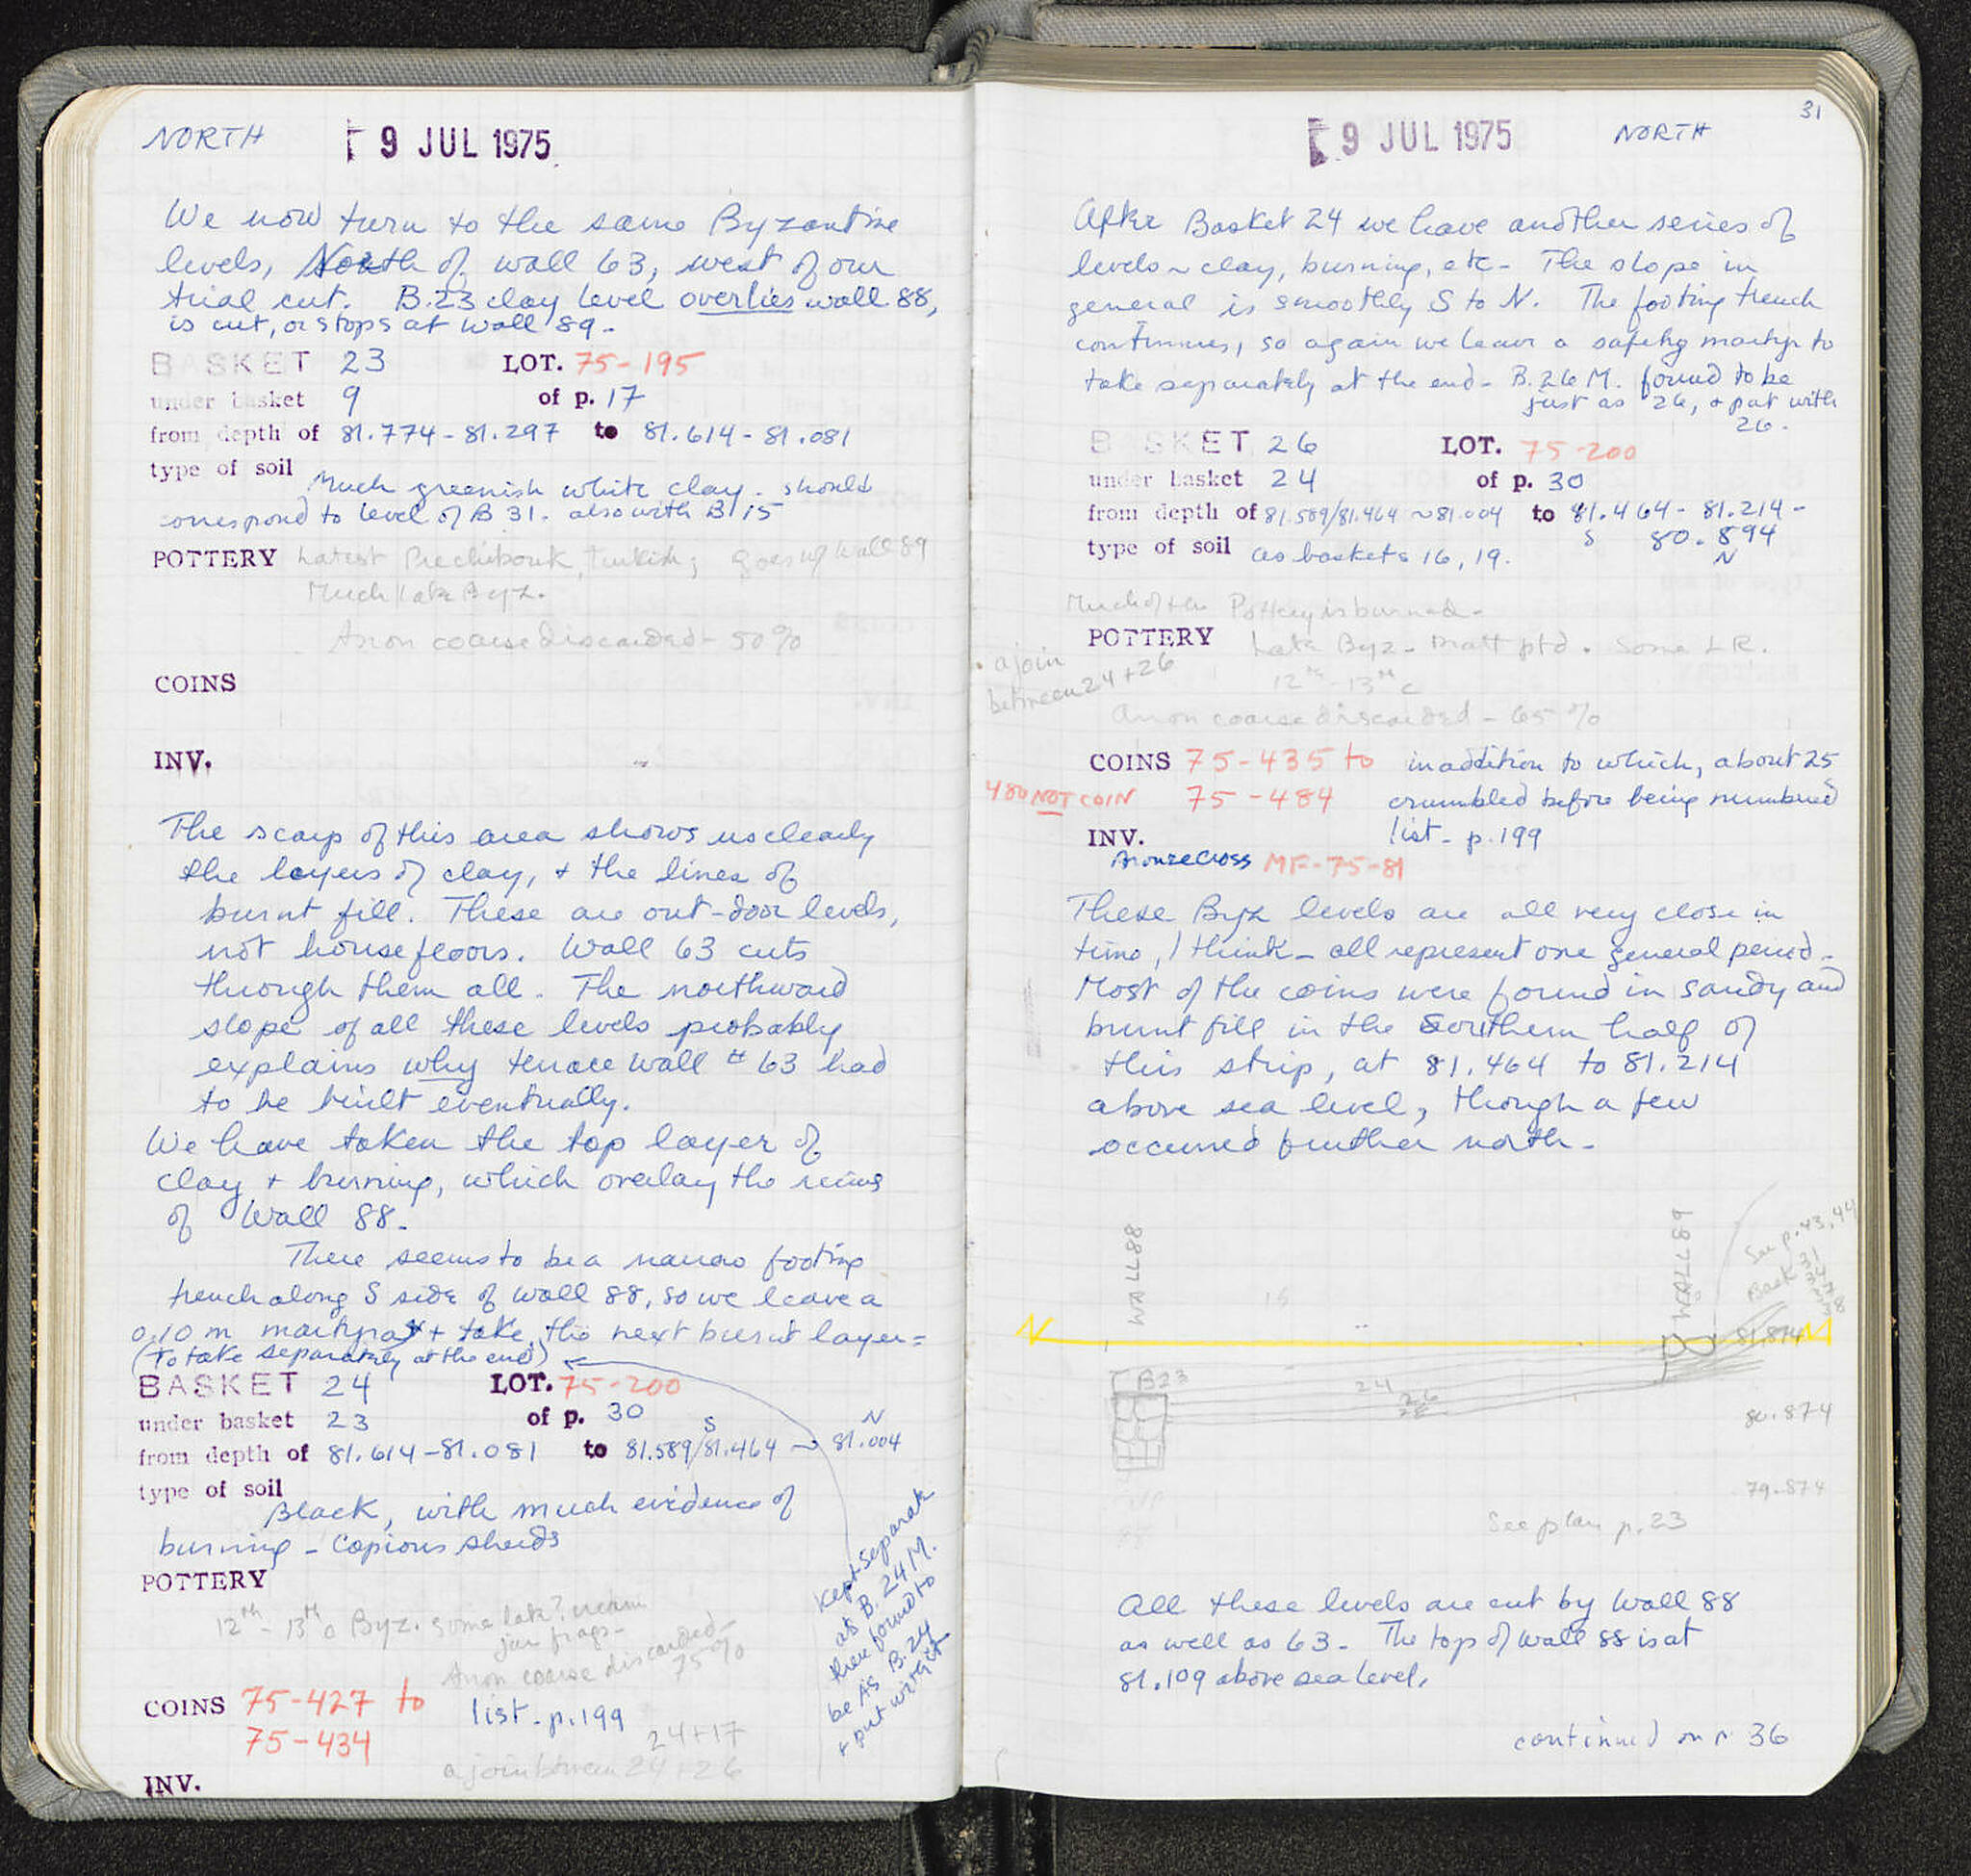 NORTH 9 JUL 1975
We now turn to the same Byzantine
levels, North of wall 63, west of our
trial cut. B.23 clay level overlies wall 88,
is cut, or stops at wall 89.
BASKET 23 LOT. 75-195
under basket 9 of p. 17
from depth of 81.774-81.297 to 81.614-81.081
type of soil
Much greenish white clay. should
correspond to level of B 31. also with B 15
POTTERY Latest Turkish; goes w/ wall 89
Much late Byz.
Anon coarse discarded - 50%
COINS
INV.
The scarp of this area shows us clearly
the layers of clay, + the lines of
burnt fill. These are out-door levels,
not house floors. Wall 63 cuts
through them all. The northward
slope of all these levels probably
explains why terrace wall # 63 had
to be built eventually.
We have taken the top layer of
clay + burning, which overlay the ruins
of Wall 88.
There seems to be a narrow footing
trench along S side of wall 88, so we leave a
0.10 m + take the next burnt layer =
(to take separately at the end)
BASKET 24 LOT. 75-200
under basket 23 of p. 30 S N
from depth of 81.614-81.081 to 81.589/81.464 ~ 81.004
type of soil
Black, with much evidence of
burning - Copious sherds
POTTERY
12th - 13th c Byz. some late?
jar frags -
Anon coarse discarded -
75%
COINS 75-427 to list - p. 199
75-434
24+17
a join between 24 + 26
INV.
Kept separate
as B. 24 M.
then found to
be as B. 24
+ put with it
31
9 JUL 1975 NORTH
After Basket 24 we have another series of
levels ~ clay, burning, etc - The slope in
general is smoothly S to N. The footing trench
continues, so again we leave a safety to
take separately at the end - B. 26 M. found to be
just as 26, + put with
26.
BASKET 26 LOT. 75-200
under basket 24 of p. 30
from depth of 81.589/81.464 ~ 81.004 to 81.464 - 81.214 -
S 80.894
type of soil as baskets 16, 19. N
Much of the Pottery is burned -
POTTERY Late Byz - matt ptd. Some LR.
12th - 13th c
a join
between 24 + 26
Anon coarse discarded - 65%
COINS 75-435 to in addition to which, about 25
480 NOT COIN 75-484 crumbled before being numbered
INV. list - p. 199
Bronze Cross MF-75-81
These Byz levels are all very close in
time, I think - all represent one general period.
Most of the coins were found in sandy and
burnt fill in the Southern half of
this strip, at 81.464 to 81.214
above sea level, though a few
occurred further north -
WALL 88
WALL 89
See p. 43, 44
Bask 31
15
81.874
B23
24
26
28
80.874
79.874
See plan p. 23
All these levels are cut by Wall 88
as well as 63 - The top of Wall 88 is at
81.109 above sea level.
continued on p. 36